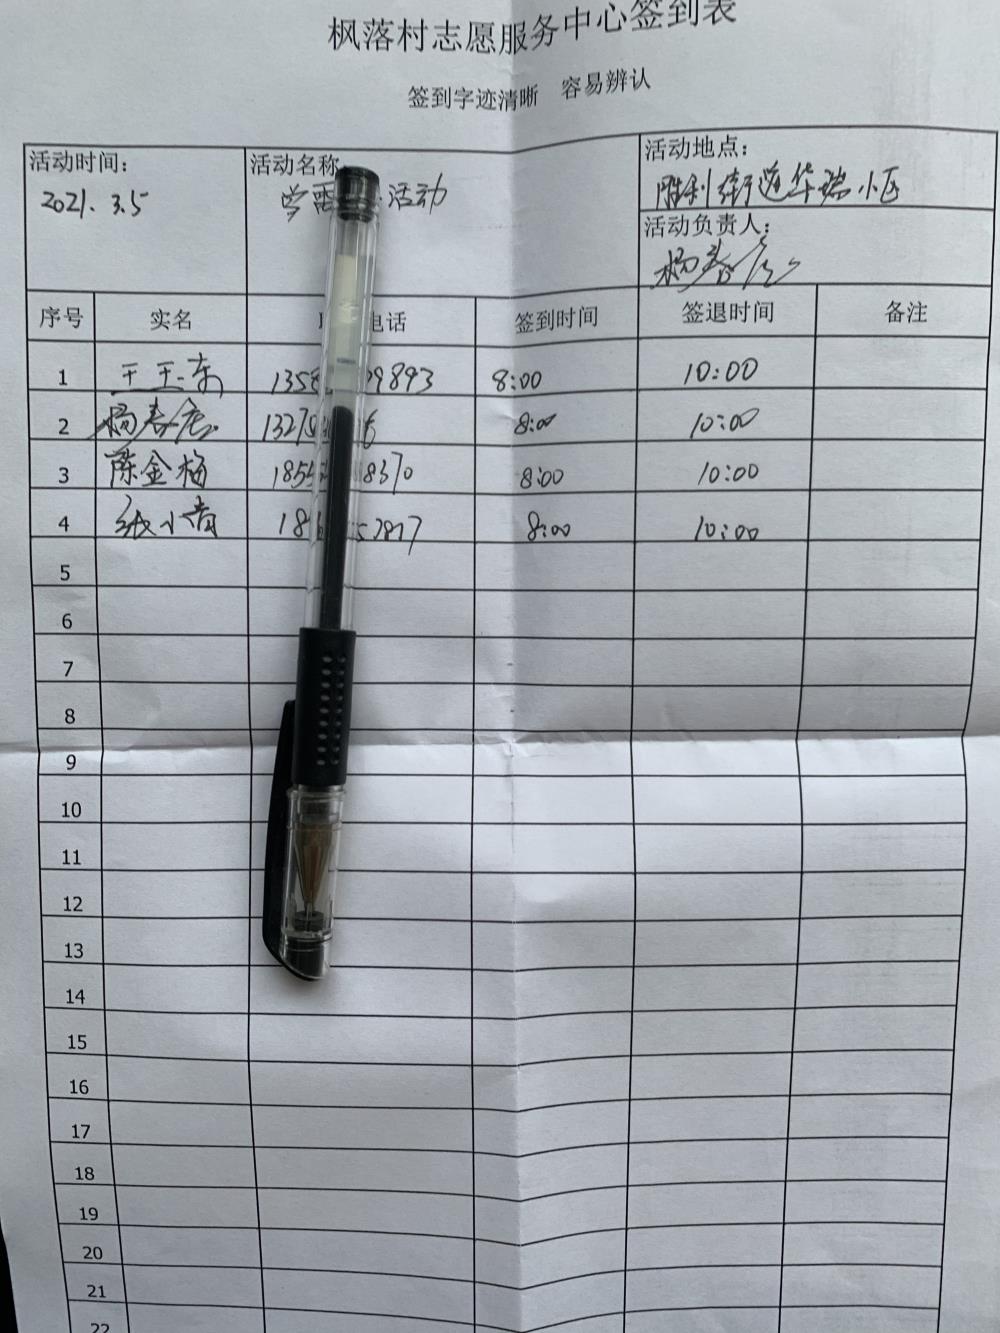 枫落村志愿服务中心签到表
签到字迹清晰 容易辨认
活动时间： 活动名称 活动地点：
2021.3.5 学雷 活动 胜利街道华瑞小区
活动负责人：
杨春
序号 实名 电话 签到时间 签退时间 备注
1 王玉东 1358 9893 8:00 10:00
2 杨春 1327 8:00 10:00
3 陈金梅 1855 8370 8:00 10:00
4 张小青 18 8:00 10:00
5
6
7
8
9
10
11
12
13
14
15
16
17
18
19
20
21
22